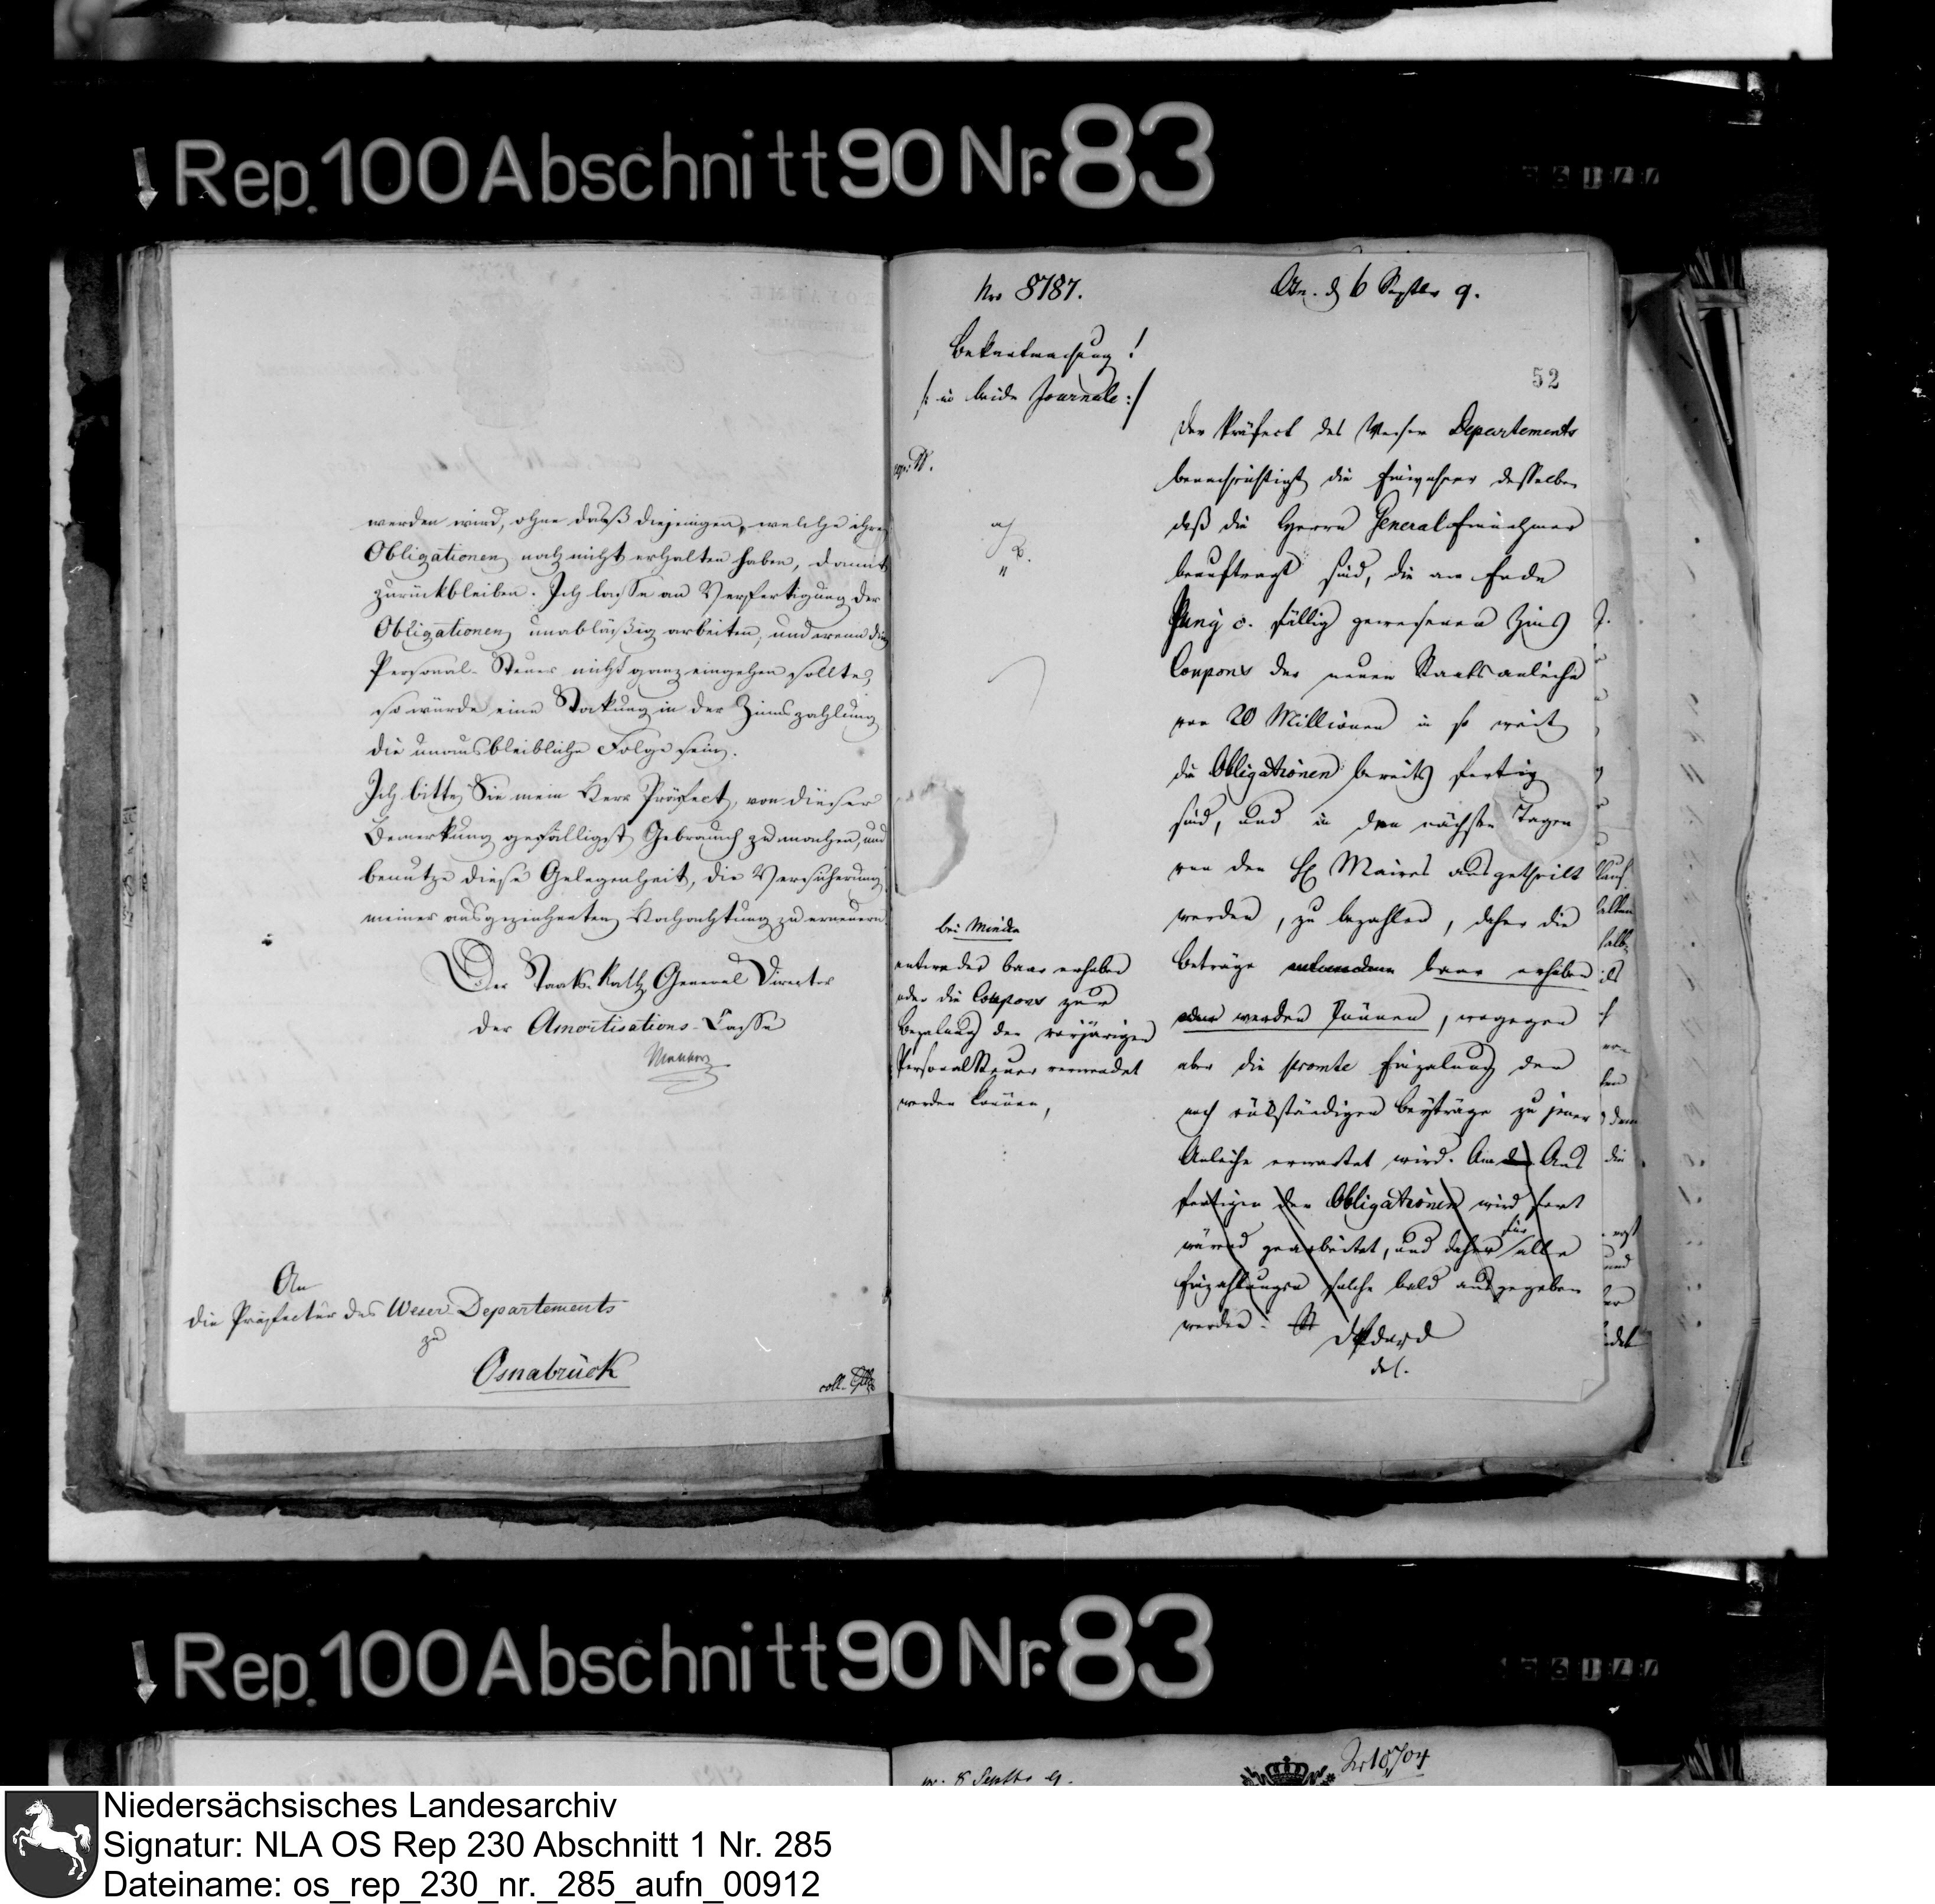 Rep. 100 Abschnitt 90 Nr. 83
werden wird, ohne dasß diejenigen, welche ihre
Obligationen noch nicht erhalten haben, damit
zurückbleiben. Ich lasse an Verfertigung der
Obligationen unabläßig arbeiten, und wenn die
Personal-Steuer nicht ganz eingehen sollte,
so würde eine Stokung in der Zinszahlung
die unausbleibliche Folge sein.
Ich bitte Sie mein Herr Präfect, von dieser
Bemerkung gefälligst Gebrauch zu machen, und
benutze diese Gelegenheit, die Versicherung
meiner ausgezeichneten Hochachtung zu erneuern.
Der Staats-Rath, General Director
der Amortisations-Casse
An
die Präfectur des Weser-Departements
zu
Osnabrück
coll.
Nro 8787.
Osn. d 6 Septbr 9.
Bekantmachung!
/: in beide Journale :/
52
Der Präfect des Weser Departements
benachrichtigt die Einwohner desselben
daß die Herrn General Einnehmer
beauftragt sind, die am Ende
Juny c. fällig gewesenen Zins
Coupons der neuen Staatsanleihe
von 20 Millionen in so weit
die Obligationen bereits fertig
sind, und in den nächsten Tagen
von den H Maires ausgetheilt
werden, zu bezahlen, daher die
Beträge baar erhoben
werden können, wogegen
aber die promte Einzalung der
noch rükständigen Beyträge zu jener
Anleihe erwartet wird. An d Aus
fertigen der Obligationen wird fort
wärend gearbeitet, und daher für alle
Einzahlungen solche bald ausgegeben
werden.
bei Minden
entweder baar erhoben
oder die Coupons zur
Bezalung der vorjärigen
Personal Steuer verwendet
werden können,
Rep. 100 Abschnitt 90 Nr. 83
pr. 8 Septbr 9.
Nr 10704
Niedersächsisches Landesarchiv
Signatur: NLA OS Rep 230 Abschnitt 1 Nr. 285
Dateiname: os_rep_230_nr._285_aufn_00912